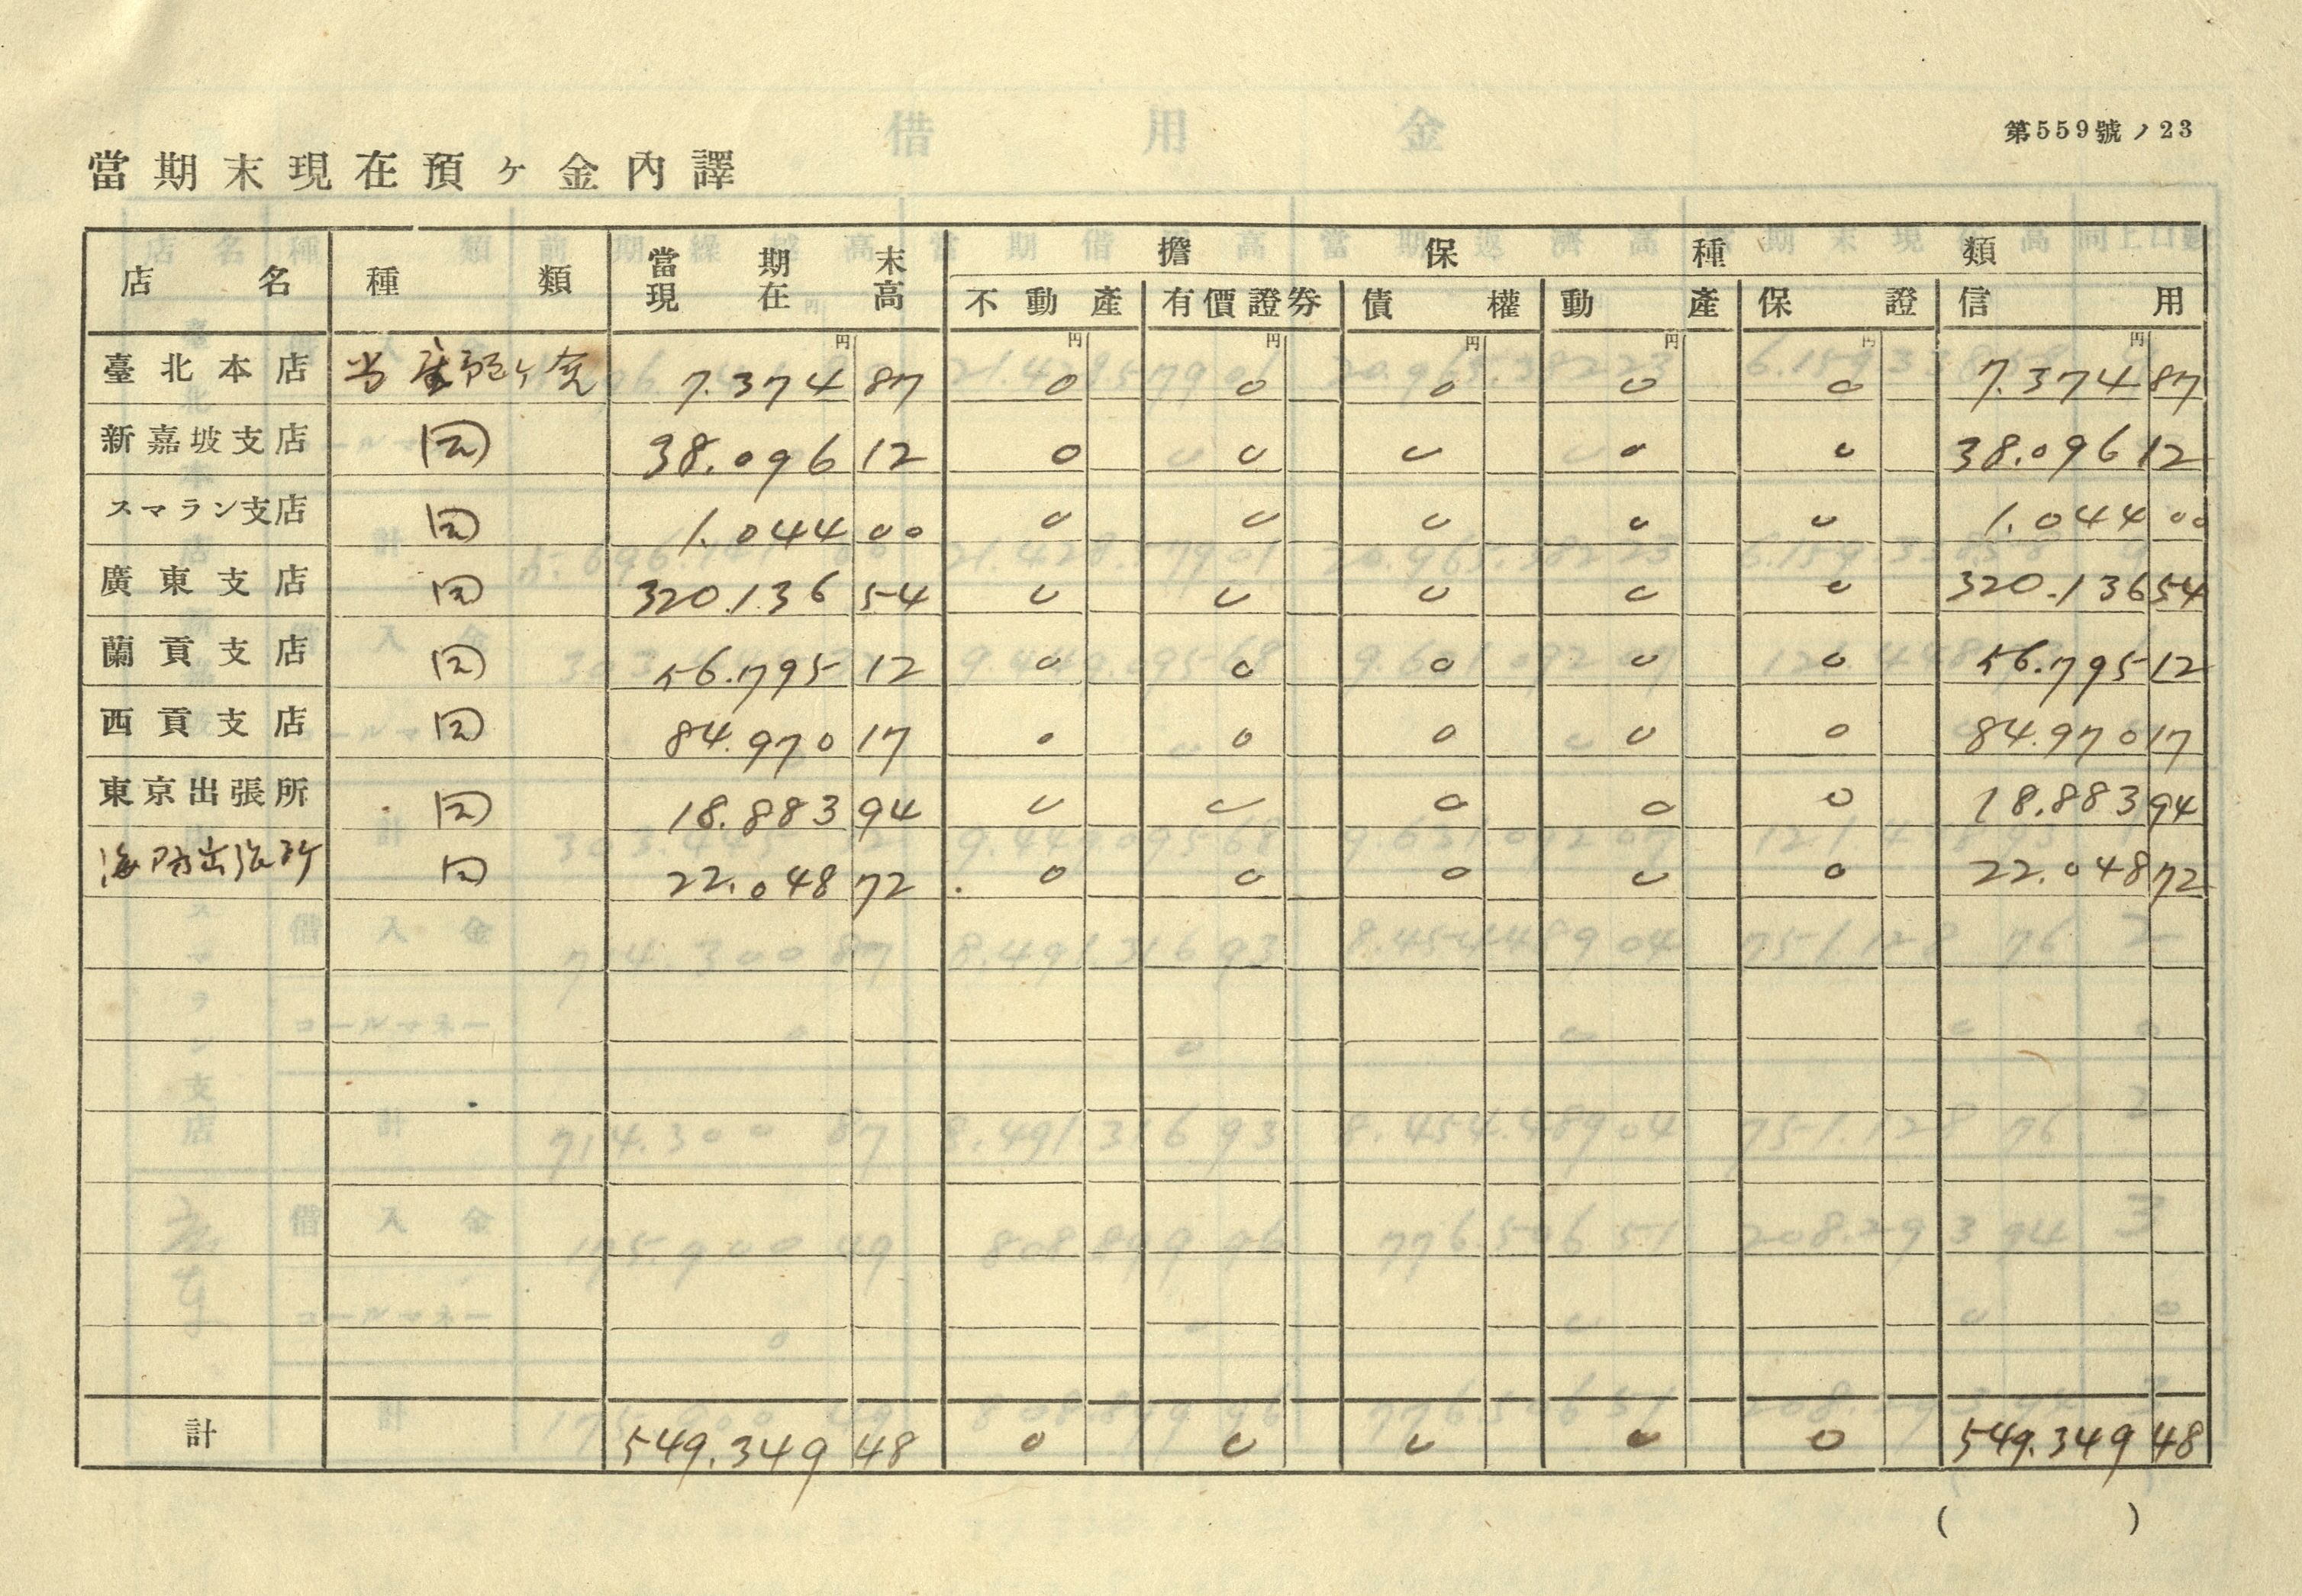 第559號ノ23
當期末現在預ヶ金內譯
店名 種類 當期末現在高 擔保種類
不動產 有價證券 債權 動產 保證 信用
円 円 円 円 円 円 円
臺北本店 当座預ヶ金 7.374 87 0 0 0 0 0 7.374 87
新嘉坡支店 仝 38.096 12 0 0 0 0 0 38.096 12
スマラン支店 仝 1.044 00 0 0 0 0 0 1.044 00
廣東支店 仝 320.136 54 0 0 0 0 0 320.136 54
蘭貢支店 仝 56.795 12 0 0 0 0 0 56.795 12
西貢支店 仝 84.970 17 0 0 0 0 0 84.970 17
東京出張所 仝 18.883 94 0 0 0 0 0 18.883 94
海防出張所 仝 22.048 72 0 0 0 0 0 22.048 72
計 549.349 48 0 0 0 0 0 549.349 48
( )